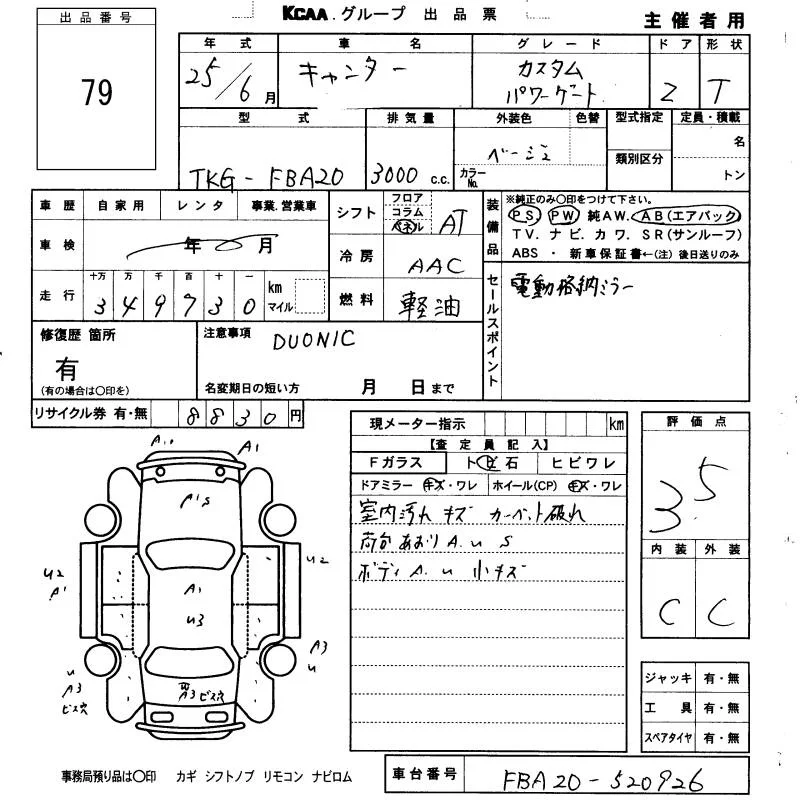 KCAA.グループ 出品票
主催者用
出品番号
79
年式 車名 グレード ドア 形状
25/6月 キャンター カスタム パワーゲート 2 T
型式 排気量 外装色 色替 型式指定 定員・積載
TKG-FBA20 3000 c.c. ベージュ カラーNo. 類別区分 名 トン
車歴 自家用 レンタ 事業.営業車
車検 年 月
走行 十万 万 千 百 十 一
3 4 9 7 3 0 km マイル
シフト フロア コラム パネル AT
冷房 AAC
燃料 軽油
装備品
※純正のみ○印をつけて下さい。
PS. PW 純AW. AB(エアバック)
TV. ナビ. カワ. SR(サンルーフ)
ABS ・ 新車保証書←(注)後日送りのみ
セールスポイント
電動格納ミラー
修復歴 箇所
有
(有の場合は○印を)
注意事項
DUONIC
名変期日の短い方 月 日まで
リサイクル券 有・無 8830円
現メーター指示 km
【査定員記入】
Fガラス トビ石 ヒビワレ
ドアミラー キズ・ワレ ホイール(CP) キズ・ワレ
室内汚れ キズ カーペット破れ
荷台あおりA.u S
ボディA.u 小キズ
評価点
3.5
内装 外装
C C
ジャッキ 有・無
工具 有・無
スペアタイヤ 有・無
A1
A1
A'S
U2
A1
A1
U3
U2
A3
u
u
A3
ビス穴
A3 ビス穴
事務局預り品は○印 カギ シフトノブ リモコン ナビロム
車台番号 FBA20-520926